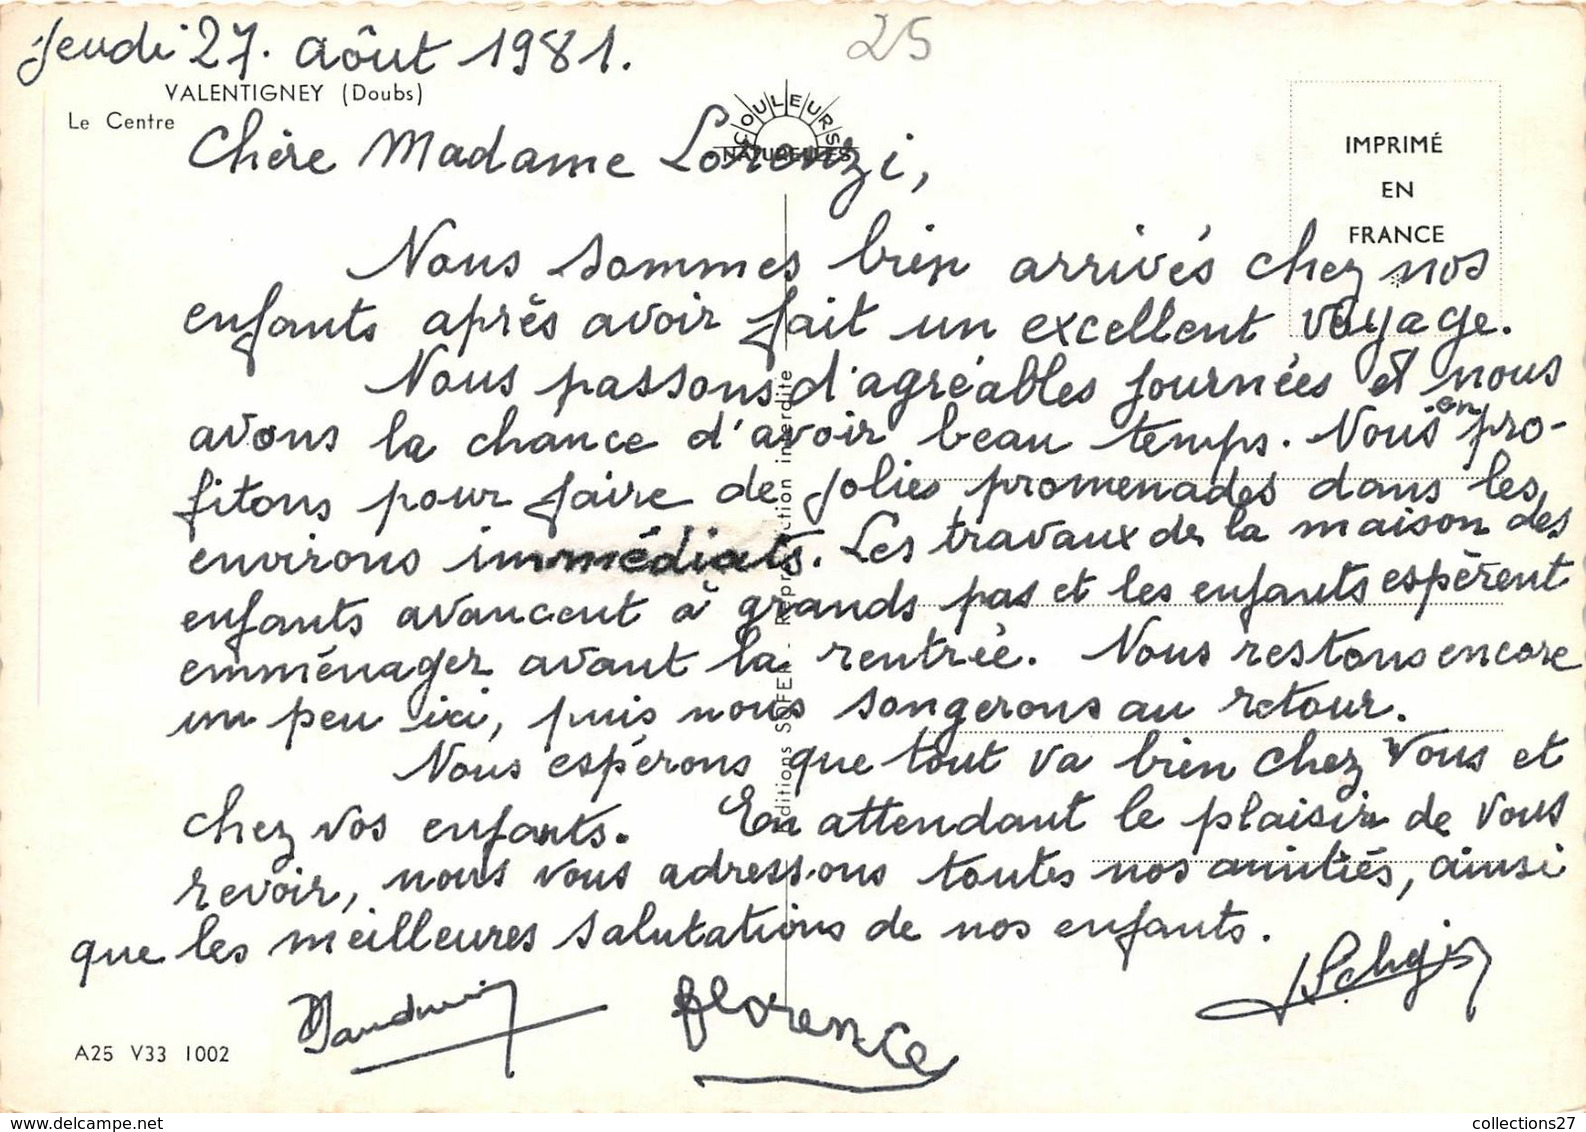 Jeudi 27. Août 1981.
25
VALENTIGNEY (Doubs)
Le Centre
COULEURS
NATURELLES
IMPRIMÉ
EN
FRANCE
Chère Madame Lorenzi,
Nous sommes bien arrivés chez nos
enfants après avoir fait un excellent voyage.
Nous passons d'agréables journées et nous
avons la chance d'avoir beau temps. Nous en pro-
fitons pour faire de jolies promenades dans les
environs immédiats. Les travaux de la maison des
enfants avancent à grands pas et les enfants espèrent
emménager avant la rentrée. Nous restons encore
un peu ici, puis nous songerons au retour.
Nous espérons que tout va bien chez vous et
chez vos enfants. En attendant le plaisir de vous
revoir, nous vous adressons toutes nos amitiés, ainsi
que les meilleures salutations de nos enfants.
Florence
Editions SOFER - Reproduction interdite
A25 V33 1002
collections27